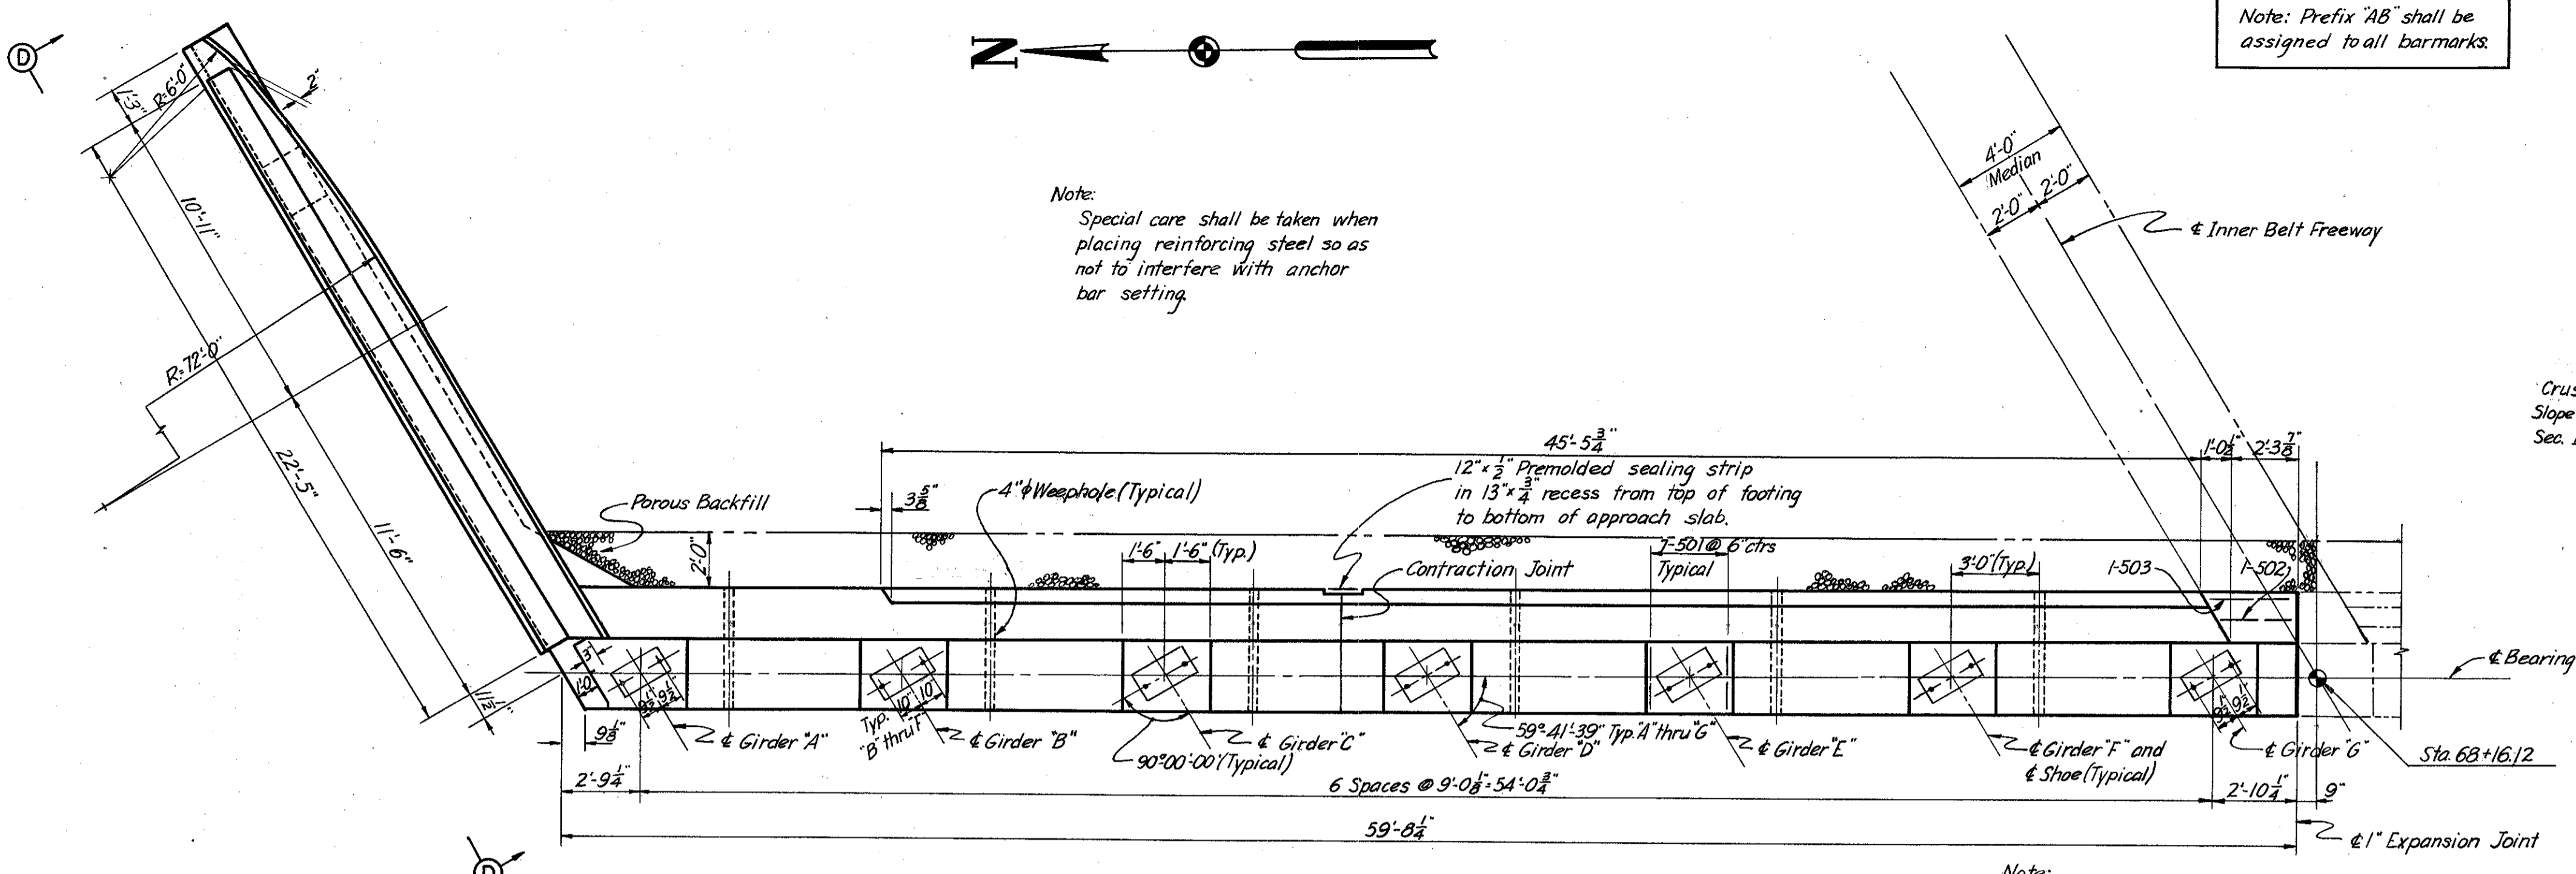 Note: Prefix "AB" shall be
assigned to all barmarks.
D
N
2"
R=6'-0"
1'-3"
10'-11"
R=72'-0"
22'-5"
11'-6"
11 1/2"
Note:
Special care shall be taken when
placing reinforcing steel so as
not to interfere with anchor
bar setting.
4'-0"
Median
2'-0"
2'-0"
℄ Inner Belt Freeway
Crus
Slope
Sec.
45'-5 3/4"
1'-0 1/2"
2'-3 7/8"
12" x 1/2" Premolded sealing strip
in 13" x 3/4" recess from top of footing
to bottom of approach slab.
3 5/8"
4"ϕ Weephole (Typical)
Porous Backfill
2'-0"
1'-6"
1'-6" (Typ.)
Contraction Joint
7-501 @ 6" ctrs
Typical
3'-0" (Typ.)
1-503
1-502
3"
1'-0"
9 1/2"
9 1/2"
10"
10"
Typ.
"B" thru "F"
9 1/2"
9 1/2"
℄ Bearing
9 1/8"
℄ Girder "A"
℄ Girder "B"
℄ Girder "C"
90°00'-00" (Typical)
59°-41'-39" Typ. "A" thru "G"
℄ Girder "D"
℄ Girder "E"
℄ Girder "F" and
℄ Shoe (Typical)
℄ Girder "G"
Sta. 68+16.12
2'-9 1/4"
6 Spaces @ 9'-0 1/8" = 54'-0 3/4"
2'-10 1/4"
9"
59'-8 1/4"
℄ 1" Expansion Joint
D
Note: